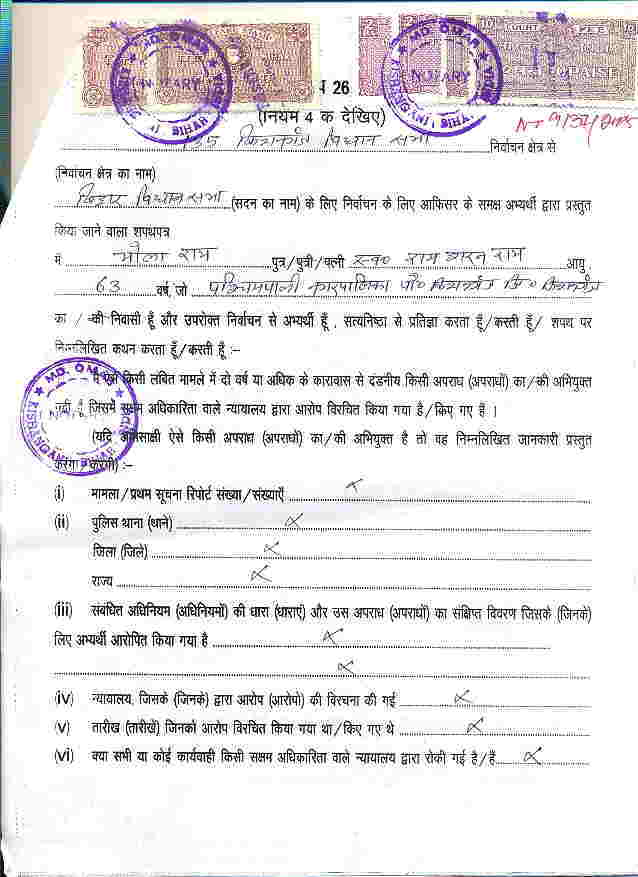 MD. OMAR NOTARY KISHANGANJ BIHAR INDIA
COURT FEE
PAISE
26
(नियम 4 क देखिए)
विधान सभा निर्वाचन क्षेत्र से
(निर्वाचन क्षेत्र का नाम)
बिहार विधान सभा (सदन का नाम) के लिए निर्वाचन के लिए आफिसर के समक्ष अभ्यर्थी द्वारा प्रस्तुत
किया जाने वाला शपथपत्र
में भोला राम पुत्र/पुत्री/पत्नी स्व० राम शरन राम आयु
63 वर्ष, जो
का / -की निवासी हूँ और उपरोक्त निर्वाचन से अभ्यर्थी हूँ , सत्यनिष्ठा से प्रतिज्ञा करता हूँ/करती हूँ/ शपथ पर
निम्नलिखित कथन करता हूँ/करती हूँ :-
MD. OMAR KISHANGANJ BIHAR
किसी लंबित मामले में दो वर्ष या अधिक के कारावास से दंडनीय किसी अपराध (अपराधों) का/-की अभियुक्त
जिसमें सक्षम अधिकारिता वाले न्यायालय द्वारा आरोप विरचित किया गया है/किए गए हैं ।
(यदि अभिसाक्षी ऐसे किसी अपराध (अपराधों) का/-की अभियुक्त है तो वह निम्नलिखित जानकारी प्रस्तुत
करेगा/करेगी) :-
(i) मामला/प्रथम सूचना रिपोर्ट संख्या/संख्याएँ x
(ii) पुलिस थाना (थाने) x
जिला (जिले) x
राज्य x
(iii) संबंधित अधिनियम (अधिनियमों) की धारा (धाराएं) और उस अपराध (अपराधों) का संक्षिप्त विवरण जिसके (जिनके)
लिए अभ्यर्थी आरोपित किया गया है x
x
(iv) न्यायालय, जिसके (जिनके) द्वारा आरोप (आरोपो) की विरचना की गई x
(v) तारीख (तारीखें) जिनको आरोप विरचित किया गया था/किए गए थे x
(vi) क्या सभी या कोई कार्यवाही किसी सक्षम अधिकारिता वाले न्यायालय द्वारा रोकी गई है/हैं x